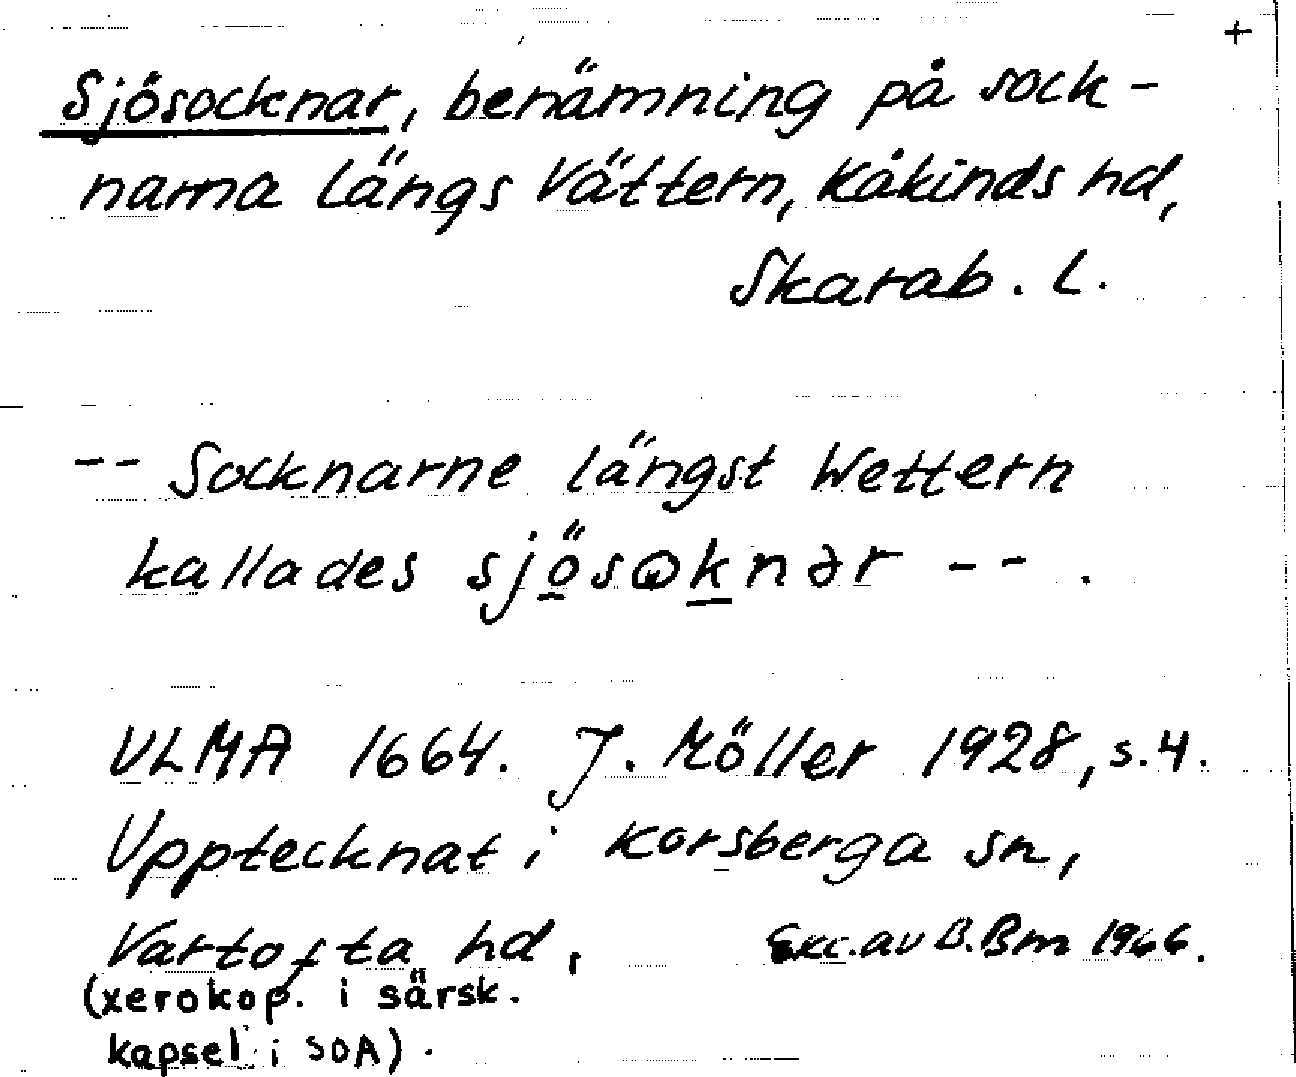 +
Sjösocknar, benämning på sock-
narna längs Vättern, Kåkinds hd,
Skarab. l.
-- Socknarne längst Wettern
kallades sjösωknər -- .
VLMA 1664. J. Möller 1928, s.4.
Upptecknat i Korsberga sn,
Vartofta hd, Exc. av B. Bm 1966.
(xerokop. i särsk.
kapsel i SOA).